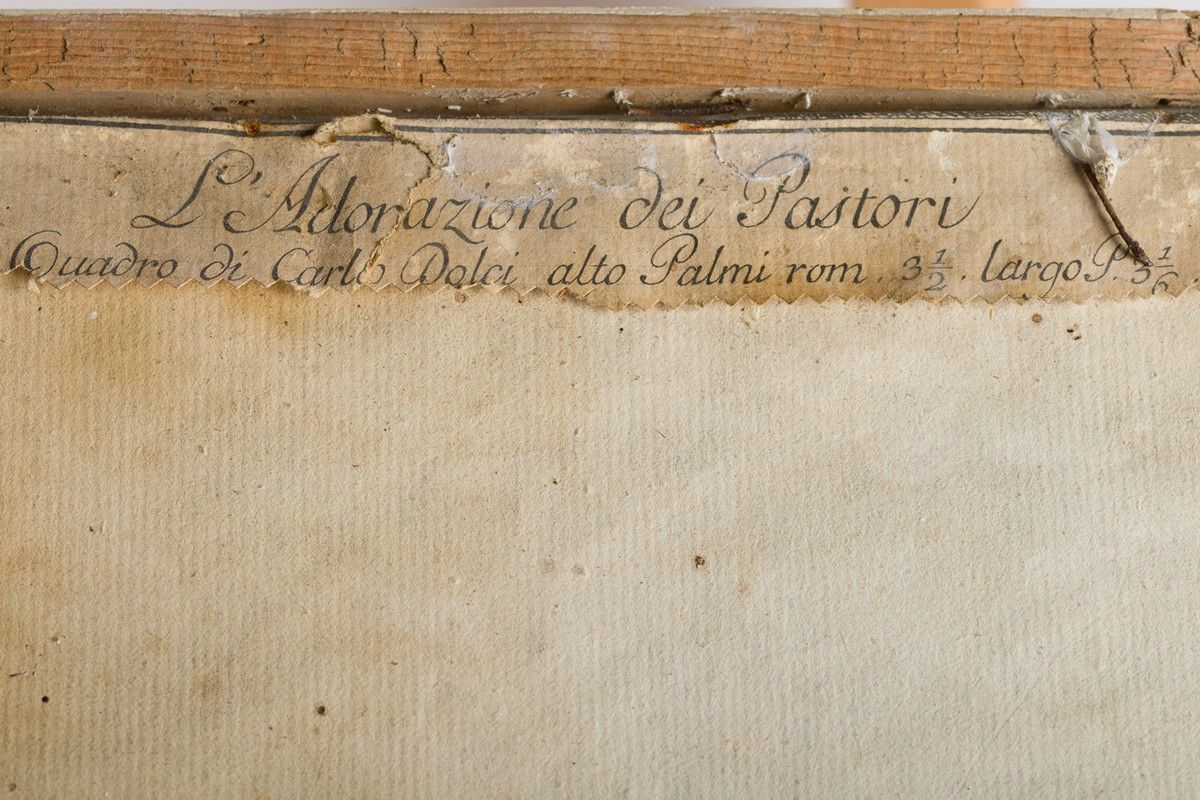 L'Adorazione dei Pastori
Quadro di Carlo Dolci alto Palmi rom. 3 1/2. largo P. 3 1/6